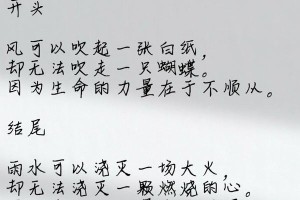 开头
风可以吹起一张白纸，
却无法吹走一只蝴蝶。
因为生命的力量在于不顺从。
结尾
雨水可以浇灭一场大火，
却无法浇灭一颗燃烧的心。